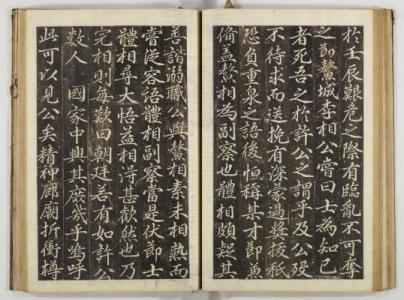 於壬辰艱危之際有臨亂不可奪
之節鰲城李相公嘗曰士為知己
者死吾之於許公之謂乎及公歿
不待求而送挽有深蒙過將拔秖
恐負重泉之語後恒稱其才即薦
偷蓋鰲相為副察也體相頗疑其
善諧溺職公與鰲相素未相熟而
嘗從容語體相副察當是伏節士
體相尋大悟益相得甚歡然也乃
完相則每歎曰朝廷若有如許公
數人 國家中興其庶幾乎嗚呼
此可以見公矣精神廊廟折衝樽